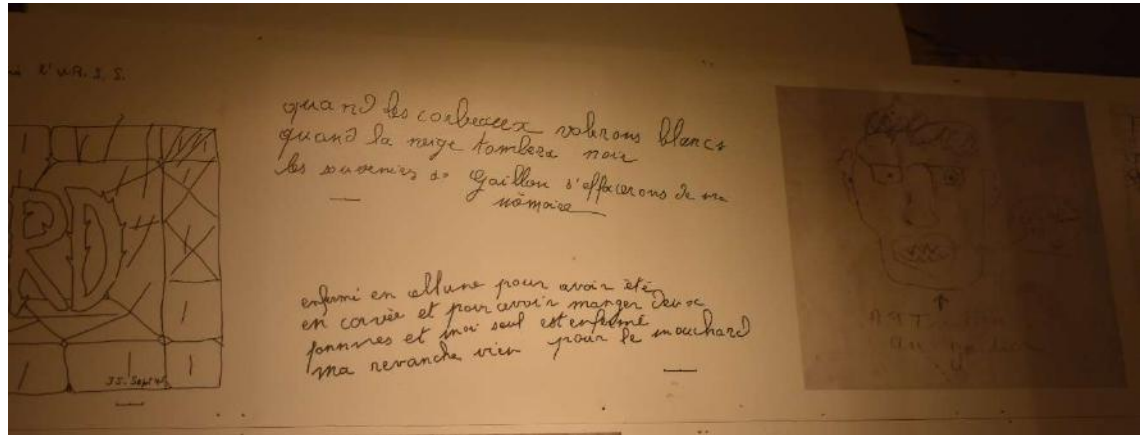 l'UR.S.S.
RD
JJ. Sept 45
quand les corbeaux volerons blancs
quand la neige tombera noir
les souvenirs de Gaillon s'effacerons de ma
mémoire
enfermé en allune pour avoir été
en corvée et pour avoir manger deux
pommes et moi seul est enfermé
ma revanche vien pour le mouchard